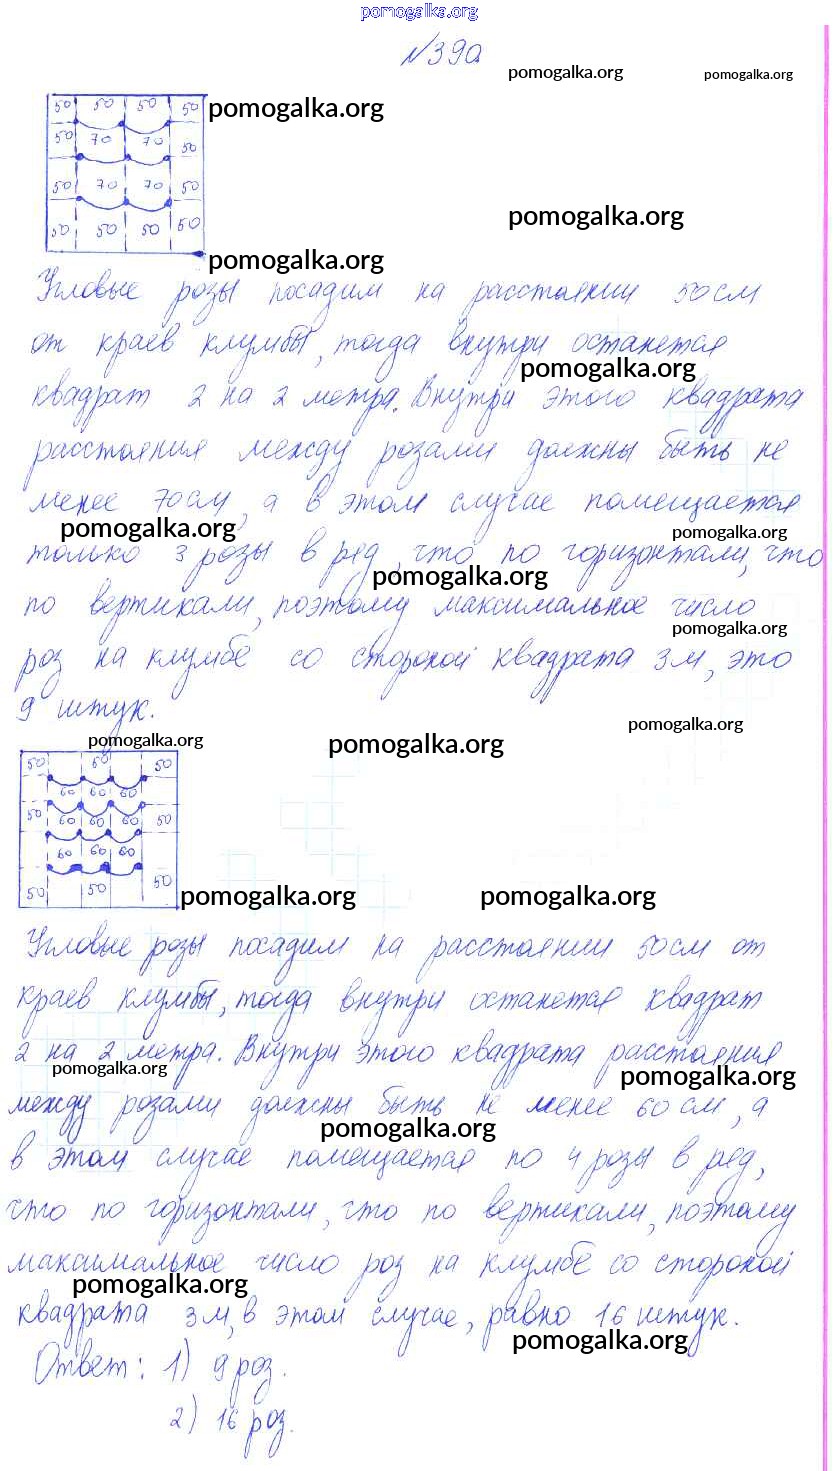 pomogalka.org
№39а
pomogalka.org pomogalka.org
50 50 50 50 pomogalka.org
50 70 70 50
50 70 70 50
pomogalka.org
50 50 50 50
pomogalka.org
Угловые розы посадим на расстоянии 50 см
от краев клумбы, тогда внутри останется
pomogalka.org
квадрат 2 на 2 метра. Внутри этого квадрата
расстояния между розами должны быть не
менее 70 см, а в этом случае помещается
pomogalka.org pomogalka.org
только 3 розы в ряд, что по горизонтали, что
pomogalka.org
по вертикали, поэтому максимальное число
pomogalka.org
роз на клумбе со стороной квадрата 3 м, это
9 штук.
pomogalka.org
pomogalka.org pomogalka.org
50 50 50
60 60 60
50 60 60 60 50
60 60 60
50 50 50
pomogalka.org pomogalka.org
Угловые розы посадим на расстоянии 50 см от
краев клумбы, тогда внутри останется квадрат
2 на 2 метра. Внутри этого квадрата расстояния
pomogalka.org pomogalka.org
между розами должны быть не менее 60 см, а
pomogalka.org
в этом случае помещается по 4 розы в ряд,
что по горизонтали, что по вертикали, поэтому
максимальное число роз на клумбе со стороной
pomogalka.org
квадрата 3 м, в этом случае, равно 16 штук.
pomogalka.org
Ответ: 1) 9 роз.
2) 16 роз.